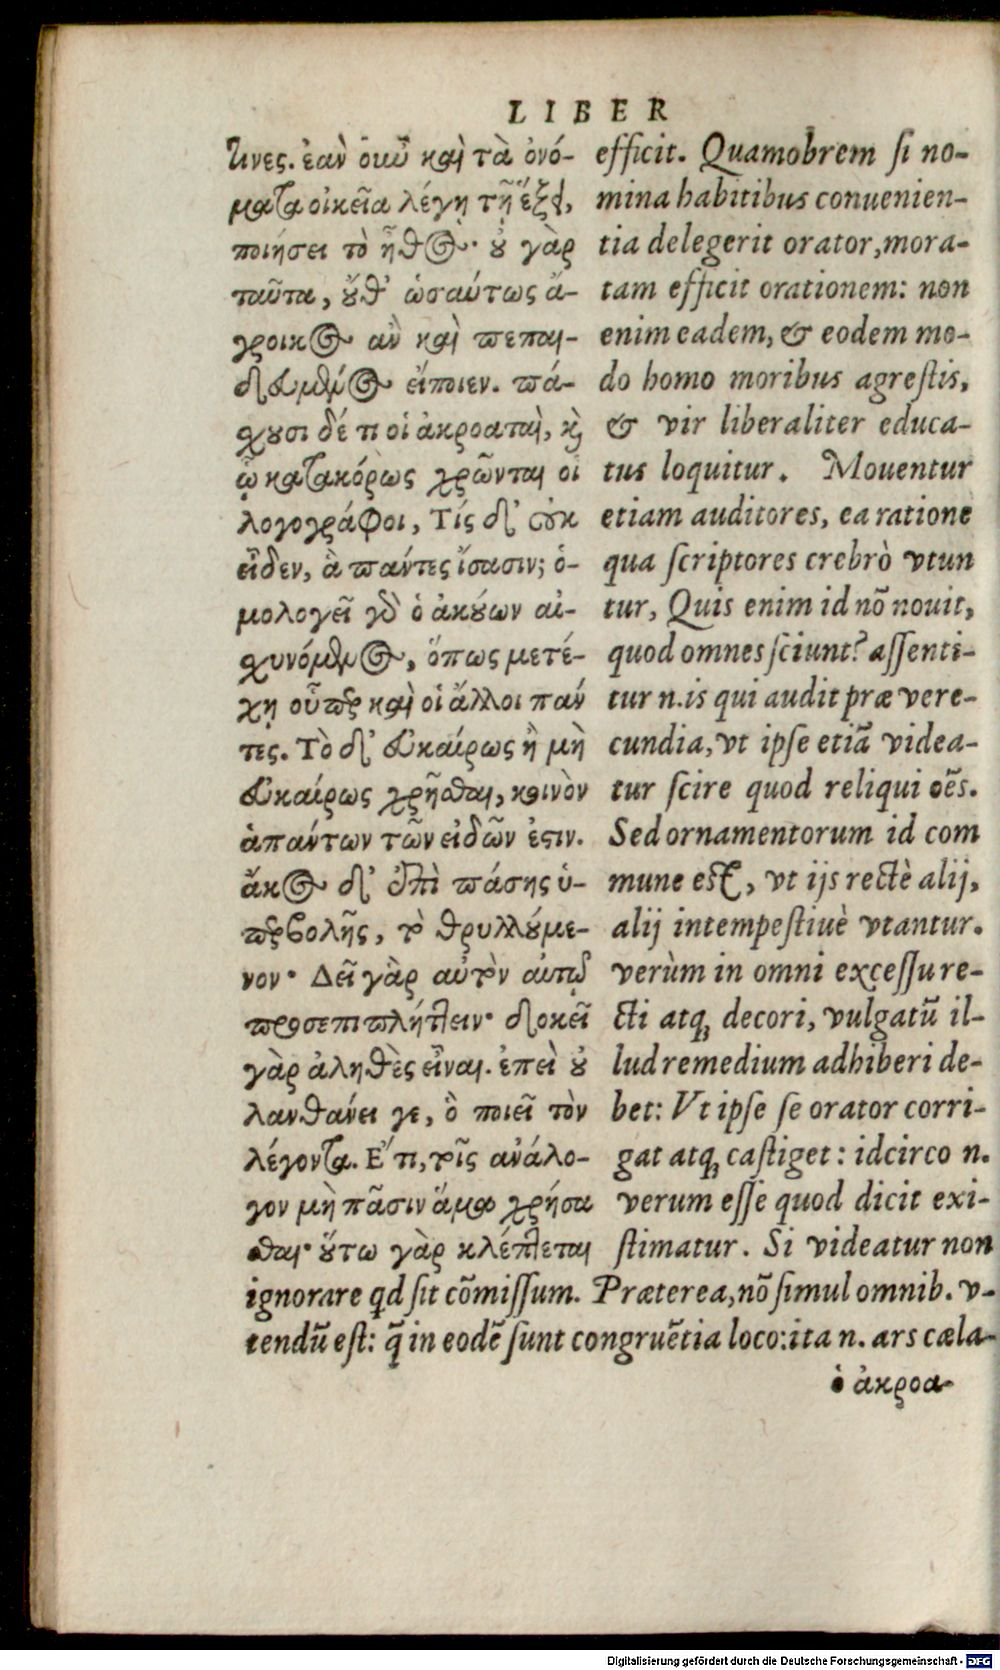 LIBER
τινες. ἐὰν οὖν καὶ τὰ ὀνό-
ματα οἰκεῖα λέγῃ τῇ ἕξει,
ποιήσει τὸ ἦθος· οὐ γὰρ
ταῦτα, οὔθ' ὡσαύτως ἄ-
γροικος ἂν καὶ πεπαι-
δευμένος εἴποιεν. πά-
χουσι δέ τι οἱ ἀκροαταὶ, καὶ
ᾧ κατακόρως χρῶνται οἱ
λογογράφοι, Τίς δ' οὐκ
εἶδεν, ἃ πάντες ἴσασιν; ὁ-
μολογεῖ γὰρ ὁ ἀκούων αἰ-
χυνόμενος, ὅπως μετέ-
χῃ οὗπερ καὶ οἱ ἄλλοι πάν
τες. Τὸ δ' εὐκαίρως ἢ μὴ
εὐκαίρως χρῆσθαι, κοινὸν
ἁπάντων τῶν εἰδῶν ἐστιν.
ἄκος δ' ἐπὶ πάσης ὑ-
περβολῆς, τὸ θρυλλούμε-
νον· Δεῖ γὰρ αὐτὸν αὑτῷ
προσεπιπλήττειν· δοκεῖ
γὰρ ἀληθὲς εἶναι. ἐπεὶ οὐ
λανθάνει γε, ὃ ποιεῖ τὸν
λέγοντα. Ἔτι, τοῖς ἀνάλο-
γον μὴ πᾶσιν ἅμα χρήσα
σθαι· οὕτω γὰρ κλέπτεται
efficit. Quamobrem ſi no-
mina habitibus conuenien-
tia delegerit orator, mora-
tam efficit orationem: non
enim eadem, & eodem mo-
do homo moribus agreſtis,
& vir liberaliter educa-
tus loquitur. Mouentur
etiam auditores, ea ratione
qua ſcriptores crebrò vtun
tur, Quis enim id nõ nouit,
quod omnes ſciunt? aſſenti-
tur n. is qui audit præ vere-
cundia, vt ipſe etiã videa-
tur ſcire quod reliqui oẽs.
Sed ornamentorum id com
mune eſt, vt ijs rectè alij,
alij intempeſtiuè vtantur.
verùm in omni exceſſu re-
cti atq; decori, vulgatũ il-
lud remedium adhiberi de-
bet: Vt ipſe ſe orator corri-
gat atq; caſtiget: idcirco n.
verum eſſe quod dicit exi-
ſtimatur. Si videatur non
ignorare qd ſit cõmiſſum. Præterea, nõ ſimul omnib. v-
tendũ eſt: q̃ in eodẽ ſunt congruẽtia loco: ita n. ars cæla-
ὁ ἀκροα-
Digitalisierung gefördert durch die Deutsche Forschungsgemeinschaft - DFG